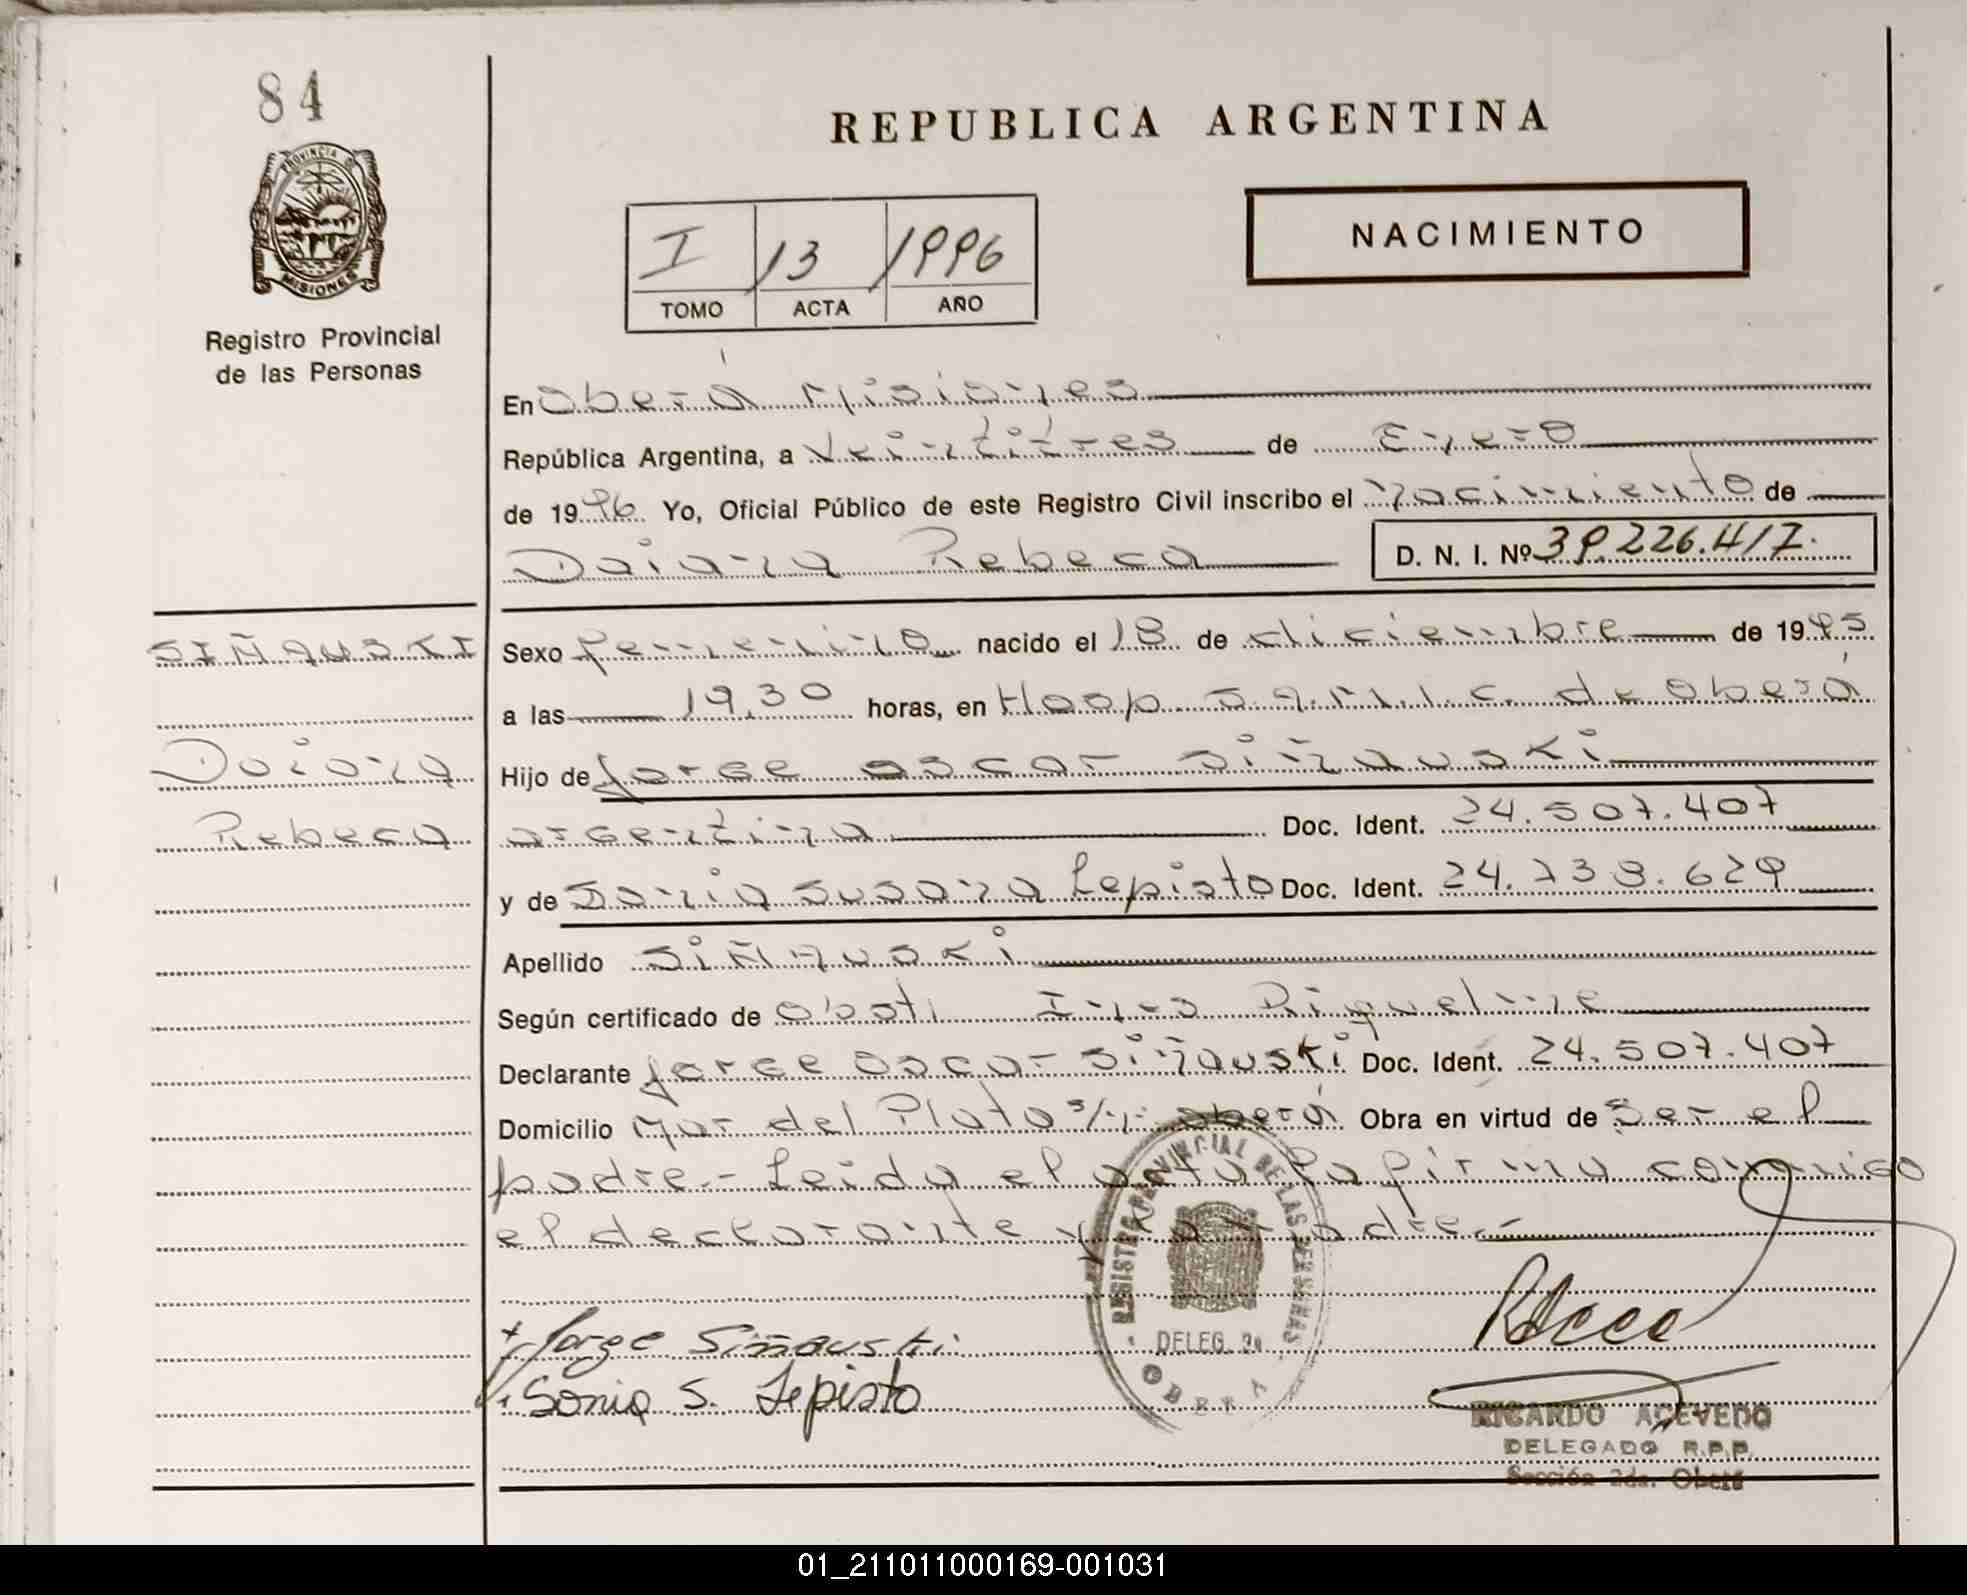 84
REPUBLICA ARGENTINA
PROVINCIA D
MISIONES
I /13 /1996
TOMO ACTA AÑO
NACIMIENTO
Registro Provincial
de las Personas
En Oberá Misiones
República Argentina, a Veintitres de Enero
de 1996 Yo, Oficial Público de este Registro Civil inscribo el Nacimiento de
Daiana Rebeca D. N. I. Nº 39.226.417.
SIÑAUSKI
Daiana
Rebeca
Sexo femenino nacido el 18 de diciembre de 1995
a las 19,30 horas, en Hosp. S.A.M.I.C. de Oberá
Hijo de Jorge Oscar Siñauski
argentina Doc. Ident. 24.507.407
y de Sonia Susana Lepisto Doc. Ident. 24.738.629
Apellido SiÑAUSKi
Según certificado de Obst. Ines Riquelme
Declarante Jorge Oscar Siñauski Doc. Ident. 24.507.407
Domicilio Mar del Plata s/n: Oberá Obra en virtud de Ser el
padre.- Leida el acta la firma conmigo
el declarante y la madre.-
REGISTRO PROVINCIAL DE LAS PERSONAS
DELEG.
OBERA
+ Jorge Siñauski
Sonia S. Lepisto
RICARDO ACEVEDO
DELEGADO R.P.P.
Sección 2da. Oberá
01_211011000169-001031